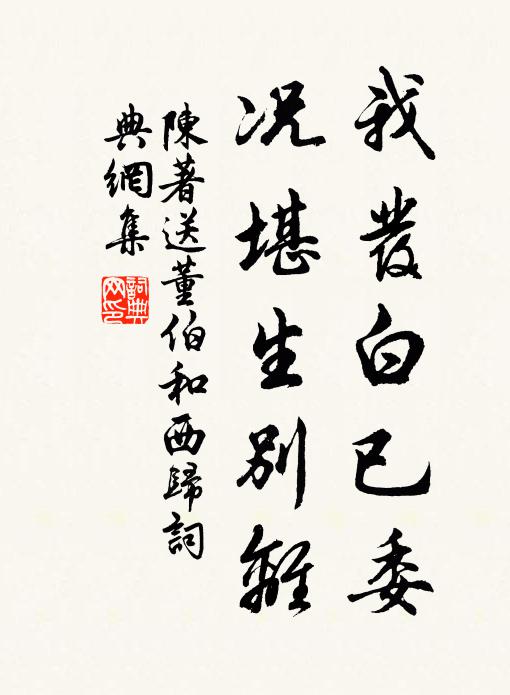 我發白已委
况堪生別離
陳著送董伯和西歸詞
典網集
詞典網印